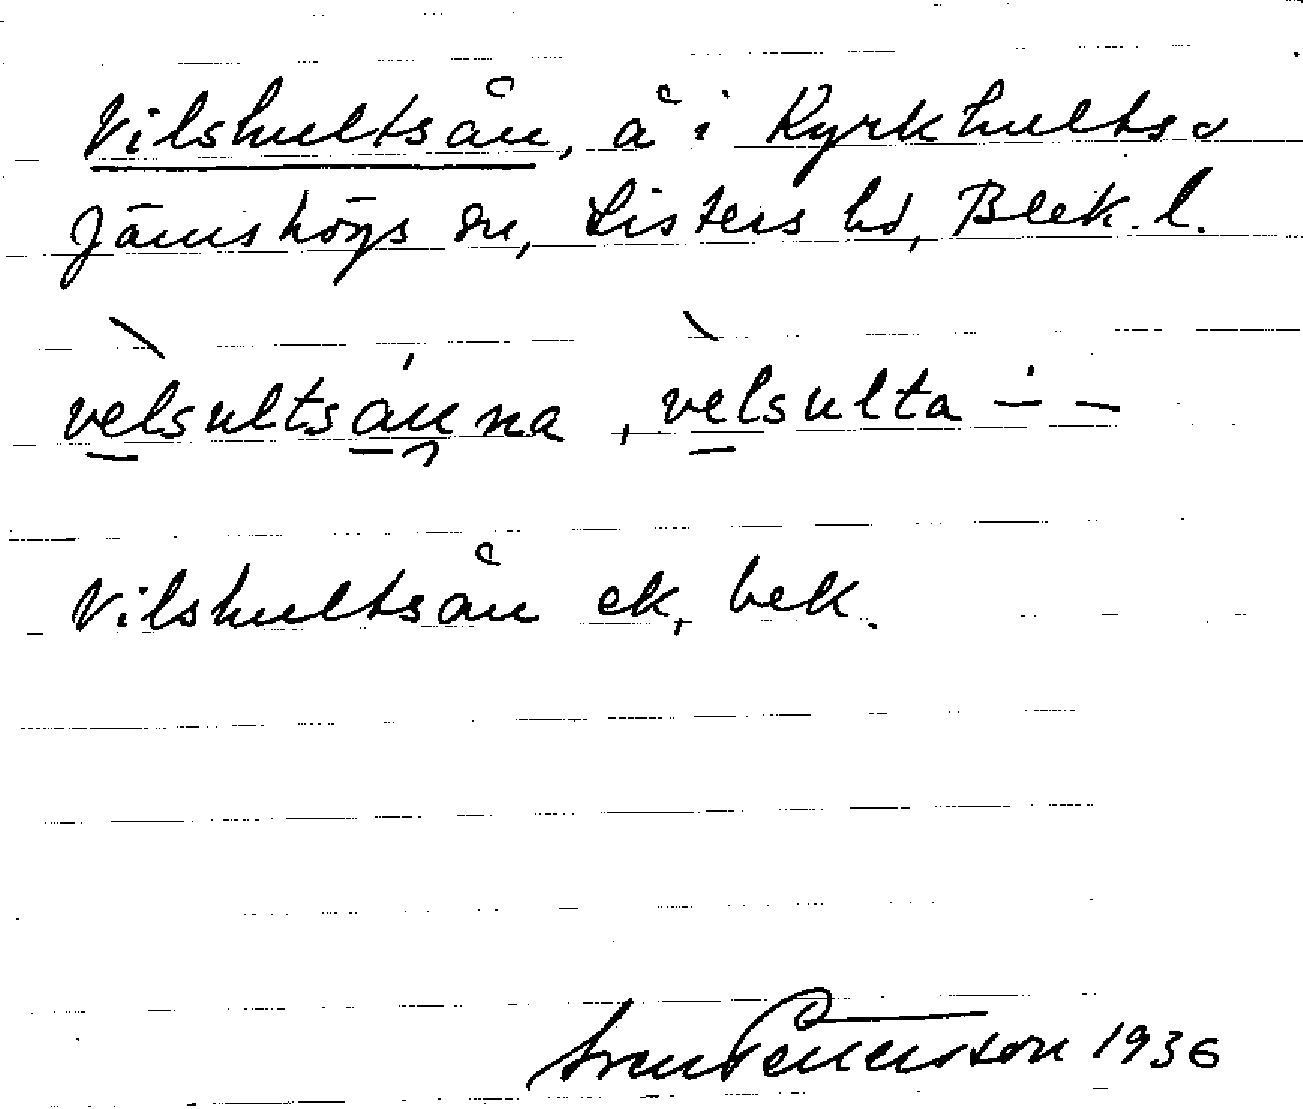 Vilshultsån, å i Kyrkhults o
Jämshögs snr, Listers hd, Blek. l.
vèlsultsánna, vèlsulta — —
Vilshultsån ek, bek.
1936